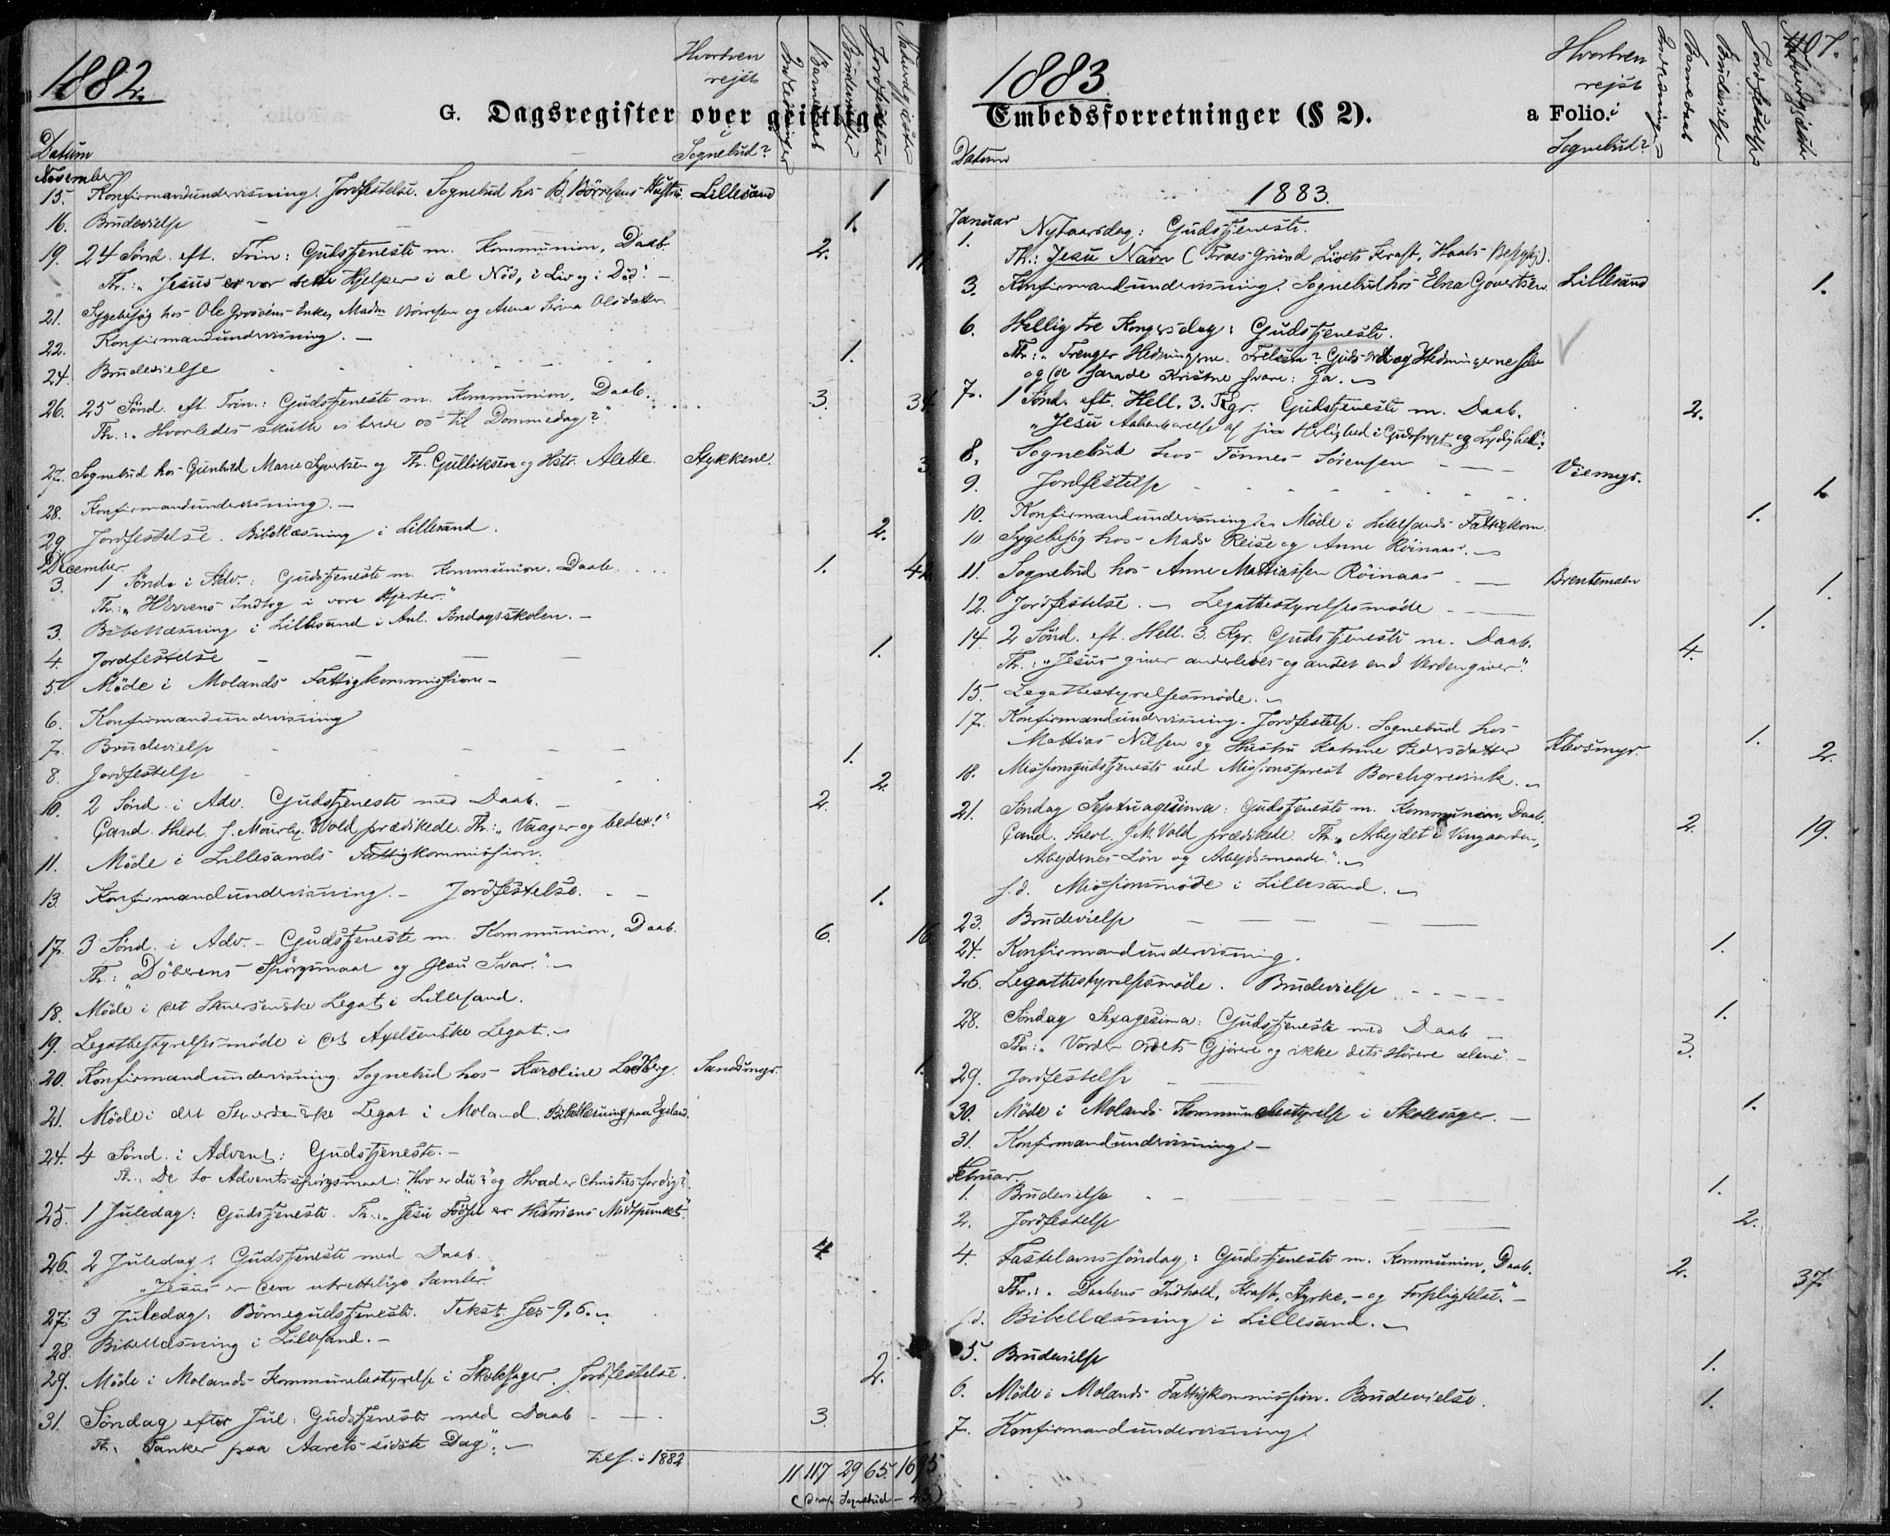 1882.
G. Dagsregister over geistlige
Datum
Hvorhen rejst i Sognebud?
Indledninger
Barnedaab
Brudevielser
Jordfæstelser
Nadverdgjæster
November
15. Konfirmandundervisning. Jordfestelse. Sognebud hos B. Börresens Hustru Lillesand 1
16. Brudevielse 1.
19. 24 Sönd. eft. Trin: Gudstjeneste m. Kommunion, Daab. 2. 11
Th.: "Jesus er vor rette Hjelper i al Nöd, i Liv og i Död!"
21. Sygebesög hos Ole Enke, Madm Börresen og Anna Olsdatter.
22. Konfirmandundervisning.
24. Brudevielse 1.
26. 25 Sönd. eft. Trin.: Gudstjeneste m. Kommunion, Daab. 3. 34
Th.: "Hvorledes skulle vi berede os til Dommedag?"
27. Sognebud hos Gunhild Marie Syvertsen og Th. Gulliksen og Hstr. Alette. Stykkene. 3.
28. Konfirmandundervisning.
29. Jordfestelse. Bibellæsning i Lillesand. 2.
December.
3. 1 Sönd. i Adv.: Gudstjeneste m. Kommunion. Daab. 1. 42
Th.: "Herrens Indtog i vore Hjerter."
3. Bibellæsning i Lillesand i Anl. Söndagsskolen.
4. Jordfestelse 1.
5. Möde i Molands Fattigkommission
6. Konfirmandundervisning
7. Brudevielse 1.
8. Jordfestelse 2.
10. 2 Sönd. i Adv. Gudstjeneste med Daab. 2.
Cand. theol. J. Mourly. Vold prædikede. Th.: "Vaager og beder!"
11. Möde i Lillesands Fattigkommission.
13. Konfirmandundervisning. Jordfestelse. 1.
17. 3 Sönd. i Adv. Gudstjeneste m. Kommunion, Daab. 6. 16
Th.: "Döberens Spörgsmaal og Jesu Svar."
18. Möde i det Legat i Lillesand.
19. Legatbestyrelsesmöde i det Axelsenske Legat.
20. Konfirmandundervisning. Sognebud hos Karoline Lodberg. Sandsmyr. 1.
21. Möde i det Legat i Moland. Bibellæsning paa Egeland.
24. 4 Sönd. i Advent: Gudstjeneste.
Th.: De to Adventsspörgsmaal: "Hvo er du?" og Hvad er Christus for dig?
25. 1 Juledag: Gudstjeneste. Th.: "Jesu Födsel er Historiens Midtpunkt."
26. 2 Juledag: Gudstjeneste med Daab. 4
"Jesus er den utrettelige Samler."
27. 3 Juledag: Börnegudstjeneste. Tekst Jes 9,6.
28. Bibellæsning i Lillesand.
29. Möde i Molands Kommunebestyrelse i Skolesager. Jordfestelse. 2.
31. Söndag efter Jul: Gudstjeneste med Daab 3.
Th: Tanker paa Aarets sidste Dag".
1882 11 117 29 65 1695
1883
Embedsforretninger (§ 2).
a Folio.
107.
Datum
Hvorhen rejst i Sognebud?
Indledninger
Barnedaab
Brudevielser
Jordfestelse
Nadverdgjæster
1883.
Januar
1. Nytaarsdag: Gudstjeneste.
Th.: Jesu Navn (Troes Grund, Livets Kraft, Haabs
3. Konfirmandundervisning. Sognebud hos Elna Govertsen Lillesand 1.
6. Hellig tre Kongersdag: Gudstjeneste.
Th.: "Trenger Hedningerne Frelsen? Guds Ord og Hedningerne selv
og de sande Kristne svare: Ja.
7. 1 Sönd. eft. Hell. 3. Kgr. Gudstjeneste m. Daab. 2.
"Jesu Aabenbarelse af sin Herlighed i Gudsfrygt og Lydighed".
8. Sognebud hos Tönnes Sörensen Viemyr. 1
9. Jordfestelse 1.
10. Konfirmandundervisning Möde i Lillesands Fattigkom.
10 Sygebesög hos Mads Reise og Anne Röinaas.
11. Sognebud hos Anne Mattiassen Röinaas Brentemoen 1.
12. Jordfestelse. Legatbestyrelsesmöde 1.
14. 2 Sönd. eft. Hell. 3. Kgr. Gudstjeneste m. Daab. 4.
Th.: "Jesus giver anderledes og andet end Verden giver."
15. Legatbestyrelsesmöde.
17. Konfirmandundervisning. Jordfestelse. Sognebud hos
Mattias Nilsen og Hustru Katrine Pedersdatter 1. 2.
18. Missionsgudstjeneste ved Missionsprest Borchgrevink.
21. Söndag Septuagesima: Gudstjeneste m. Kommunion, Daab. 2. 19.
Cand. theol. J. M. Vold prædikede. Th. "Arbejdet i Vingaarden,
Arbejdernes Lön og Arbejdsmaade".
s.d. Missionsmöde i Lillesand.
23. Brudevielse 1.
24. Konfirmandundervisning.
26. Legatbestyrelsesmöde. Brudevielse 1.
28. Söndag Sexagesima: Gudstjeneste med Daab 3.
Th.: "Vorder Ordets Gjörere og ikke dets Hörere alene".
29. Jordfestelse 1.
30. Möde i Molands Kommunebestyrelse i Skolesager.
31. Konfirmandundervisning
Februar.
1. Brudevielse 1.
2. Jordfestelse 2.
4. Fastelavnssöndag: Gudstjeneste m. Kommunion, Daab. 2. 37
Th.: "Daabens Indhold, Kraft, Styrke, og Forpligtelse."
s.d. Bibellæsning i Lillesand.
5. Brudevielse 1.
6. Möde i Molands Fattigkommission. Brudevielse. 1.
7. Konfirmandundervisning.